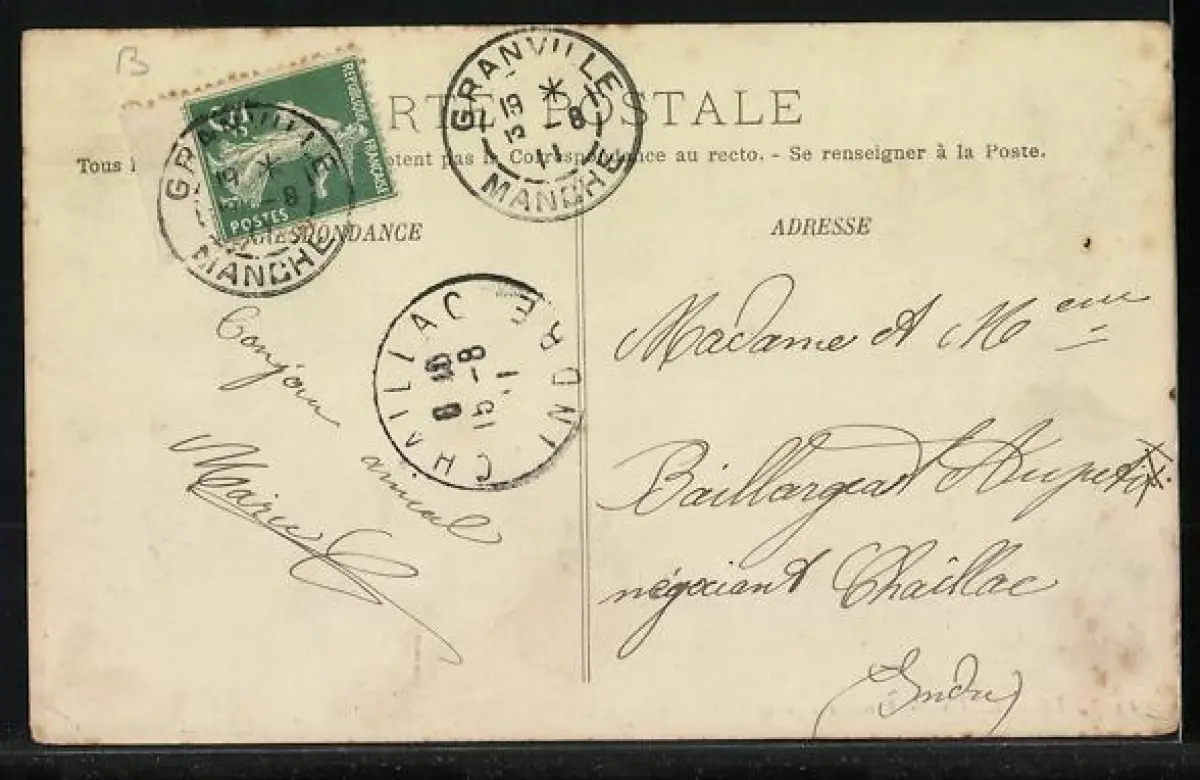 B
RÉPUBLIQUE FRANÇAISE
POSTES
GRANVILLE
19 *
-8
MANCHE
GRANVILLE
19 *
13 -8
11
MANCHE
RTE POSTALE
Tous otent pas la Correspondance au recto. - Se renseigner à la Poste.
RESPONDANCE
ADRESSE
CHAILLAC
INDRE
15-8
11
Bonjour
amical
Marie
Madame et Meur
Baillargeat Dupetit
négociant Chaillac
(Indre)